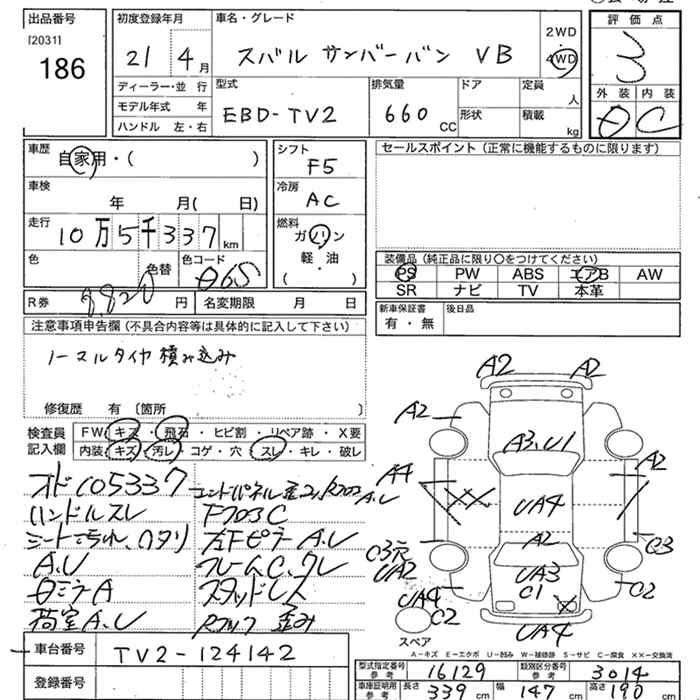 出品番号
[2031]
186
初度登録年月
21 4月
車名・グレード
スバル サンバーバン VB
2WD
4WD
評価点
3
外装 内装
C
ディーラー・並行
モデル年式 年
ハンドル 左・右
型式
EBD-TV2
排気量
660 CC
ドア
形状
定員
人
積載
kg
車歴
自家用・( )
車検
年 月( 日)
走行
10万5千337 km
色 色替 色コード
R券 9,820 円 名変期限 月 日
シフト
F5
冷房
AC
燃料
ガソリン
軽・油
( )
セールスポイント(正常に機能するものに限ります)
装備品(純正品に限り○をつけてください)
PS PW ABS エアB AW
SR ナビ TV 本革
新車保証書
有・無
後日品
注意事項申告欄(不具合内容等は具体的に記入して下さい)
ノーマルタイヤ積み込み
修復歴 有 〔箇所 〕
検査員
記入欄
FW キズ・飛石・ヒビ割・リペア跡・X要
内装 キズ・汚レ・コゲ・穴・スレ・キレ・破レ
オド105337
ハンドルスレ
シート汚れ、ヘタリ
A.U
内ミラーA
荷室A.U
エンドパネル歪み、
A.U
左Fピラー A.U
フレームC、クレ
スタッドレス
歪み
A2 A2
A2
A3、U1
A2
A4
XX
UA4
A2
C3穴
UA2
UA3
C1
X
C3
C2
UA4
C2
UA4
スペア
A-キズ E-エクボ U-凹み W-補修跡 S-サビ C-腐食 ××-交換済
車台番号 TV2-124142
登録番号
型式指定番号
参考
16129
類別区分番号
参考
3014
車庫証明用
参考
長さ 339 cm 幅 147 cm 高さ 190 cm